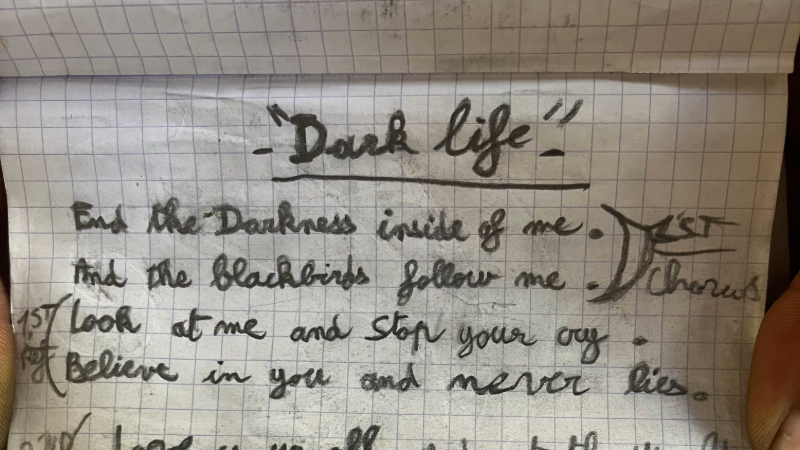 -"Dark life"-
End the Darkness inside of me. 1ST
And the blackbirds follow me. Chorus
1ST Look at me and stop your cry.
Believe in you and never lies.